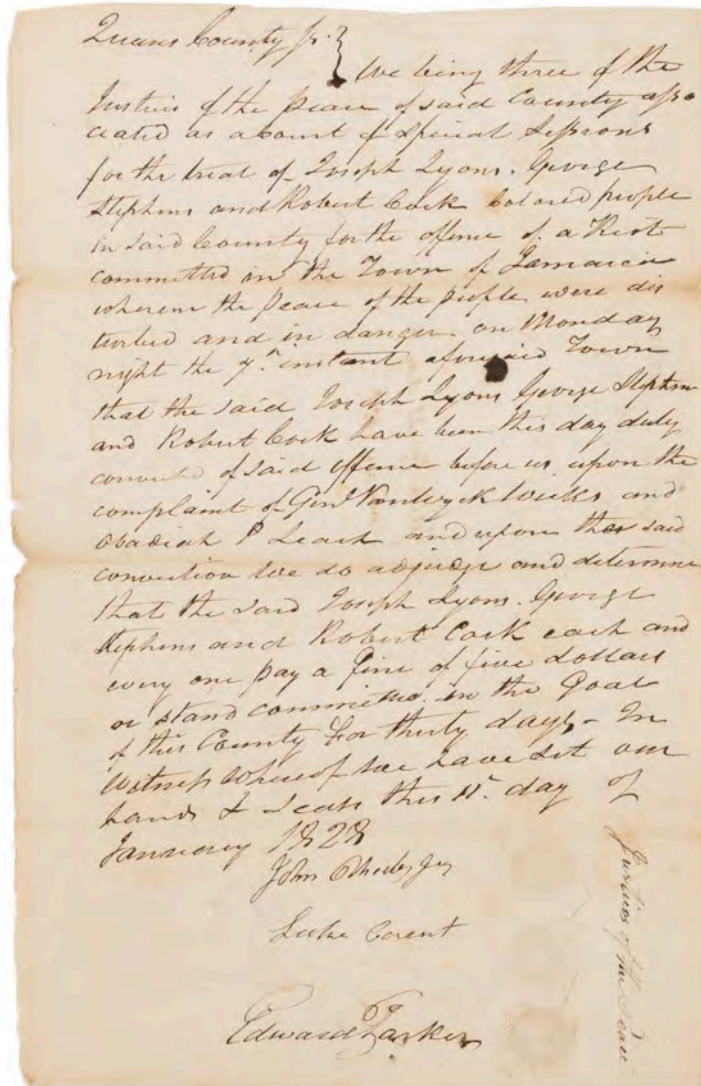 Queens County ss.
We being three of the
Justices of the peace of said County asso
ciated as a Court of Special Sessions
for the treal of Joseph Lyons. George
Stephens and Robert Cock Colored people
in said County for the offence of a Riot
committed in the Town of Jamaica
wherein the peace of the people were dis
turbed and in danger on Monday
night the 7th instant aforesaid Town
that the said Joseph Lyons George Stephens
and Robert Cock have been this day duly
convicted of said offence before us upon the
complaint of Genl Vanwyck Wicks and
Obadiah P Leach and upon the said
conviction We do adjudge and determine
that the said Joseph Lyons. George
Stephens and Robert Cock each and
every one pay a Fine of five dollars
or stand committed in the Goal
of this County for thirty days - In
Witness Whereof we have set our
hands & Seals this 11th day of
January 1828
John
Luke
Edward Parker
Justices of the Peace